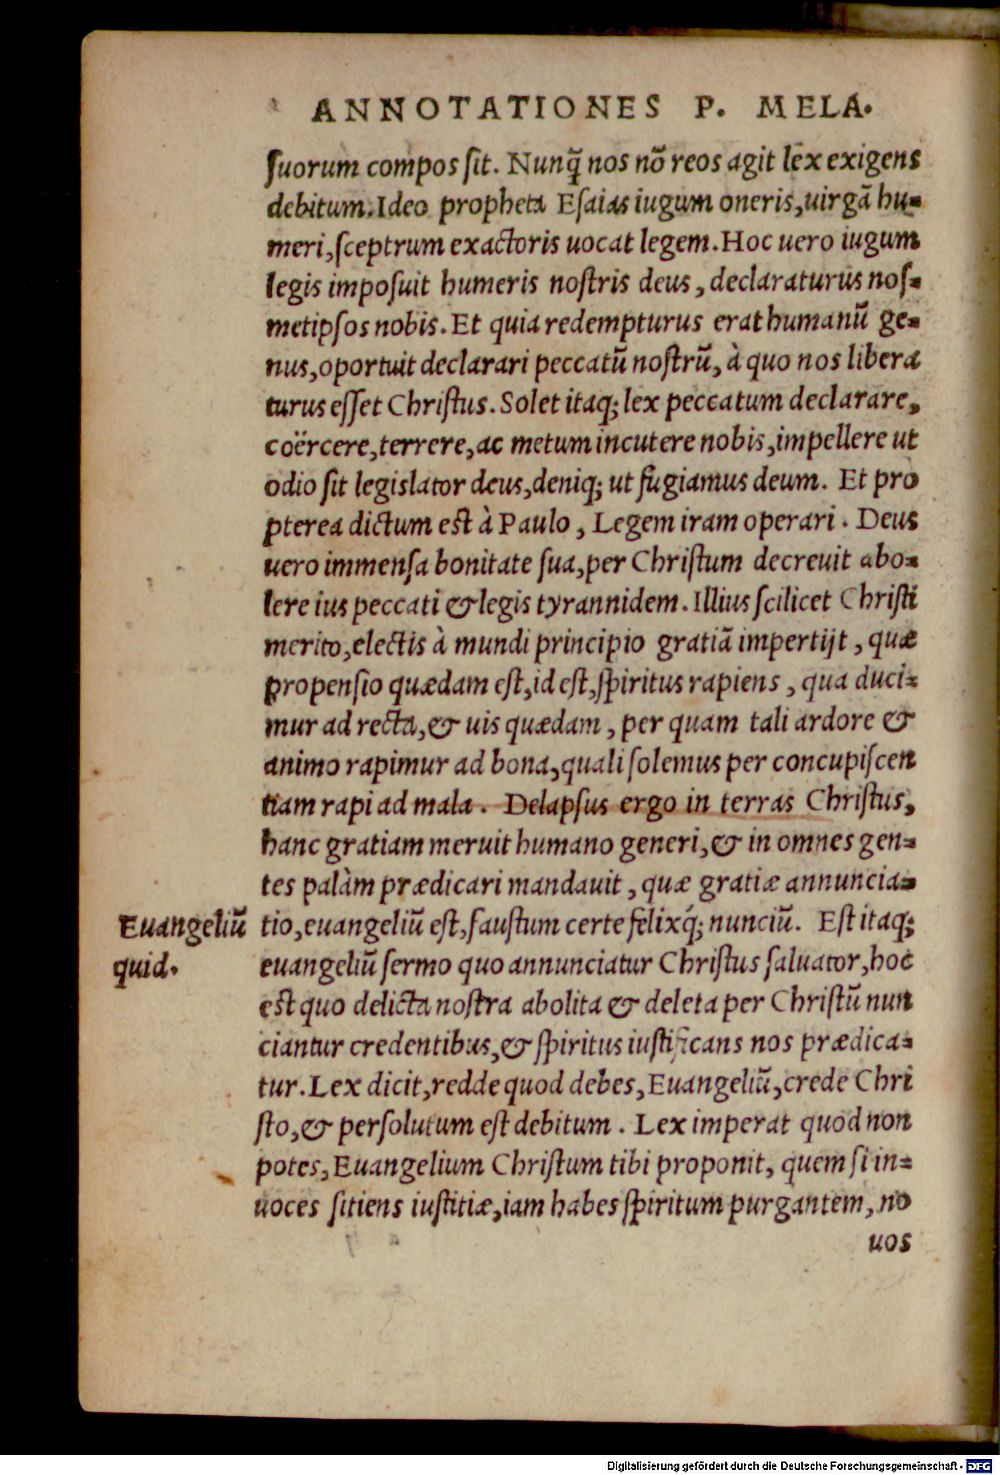 ANNOTATIONES P. MELA.
suorum compos sit. Nunq̃ nos nõ reos agit lex exigens
debitum. Ideo propheta Esaias iugum oneris, uirgã hu-
meri, sceptrum exactoris uocat legem. Hoc uero iugum
legis imposuit humeris nostris deus, declaraturus nos-
metipsos nobis. Et quia redempturus erat humanũ ge-
nus, oportuit declarari peccatũ nostrũ, à quo nos libera
turus esset Christus. Solet itaq; lex peccatum declarare,
coërcere, terrere, ac metum incutere nobis, impellere ut
odio sit legislator deus, deniq; ut fugiamus deum. Et pro
pterea dictum est à Paulo, Legem iram operari. Deus
uero immensa bonitate sua, per Christum decreuit abo-
lere ius peccati & legis tyrannidem. Illius scilicet Christi
merito, electis à mundi principio gratiã impertijt, quæ
propensio quædam est, id est, spiritus rapiens, qua duci-
mur ad recta, & uis quædam, per quam tali ardore &
animo rapimur ad bona, quali solemus per concupiscen
tiam rapi ad mala. Delapsus ergo in terras Christus,
hanc gratiam meruit humano generi, & in omnes gen-
tes palàm prædicari mandauit, quæ gratiæ annuncia-
Euangeliũ
quid.
tio, euangeliũ est, faustum certe felixq́; nunciũ. Est itaq;
euangeliũ sermo quo annunciatur Christus saluator, hoc
est quo delicta nostra abolita & deleta per Christũ nun
ciantur credentibus, & spiritus iustificans nos prædica-
tur. Lex dicit, redde quod debes, Euangeliũ, crede Chri
sto, & persolutum est debitum. Lex imperat quod non
potes, Euangelium Christum tibi proponit, quem si in-
uoces sitiens iustitiæ, iam habes spiritum purgantem, no
uos
Digitalisierung gefördert durch die Deutsche Forschungsgemeinschaft - DFG